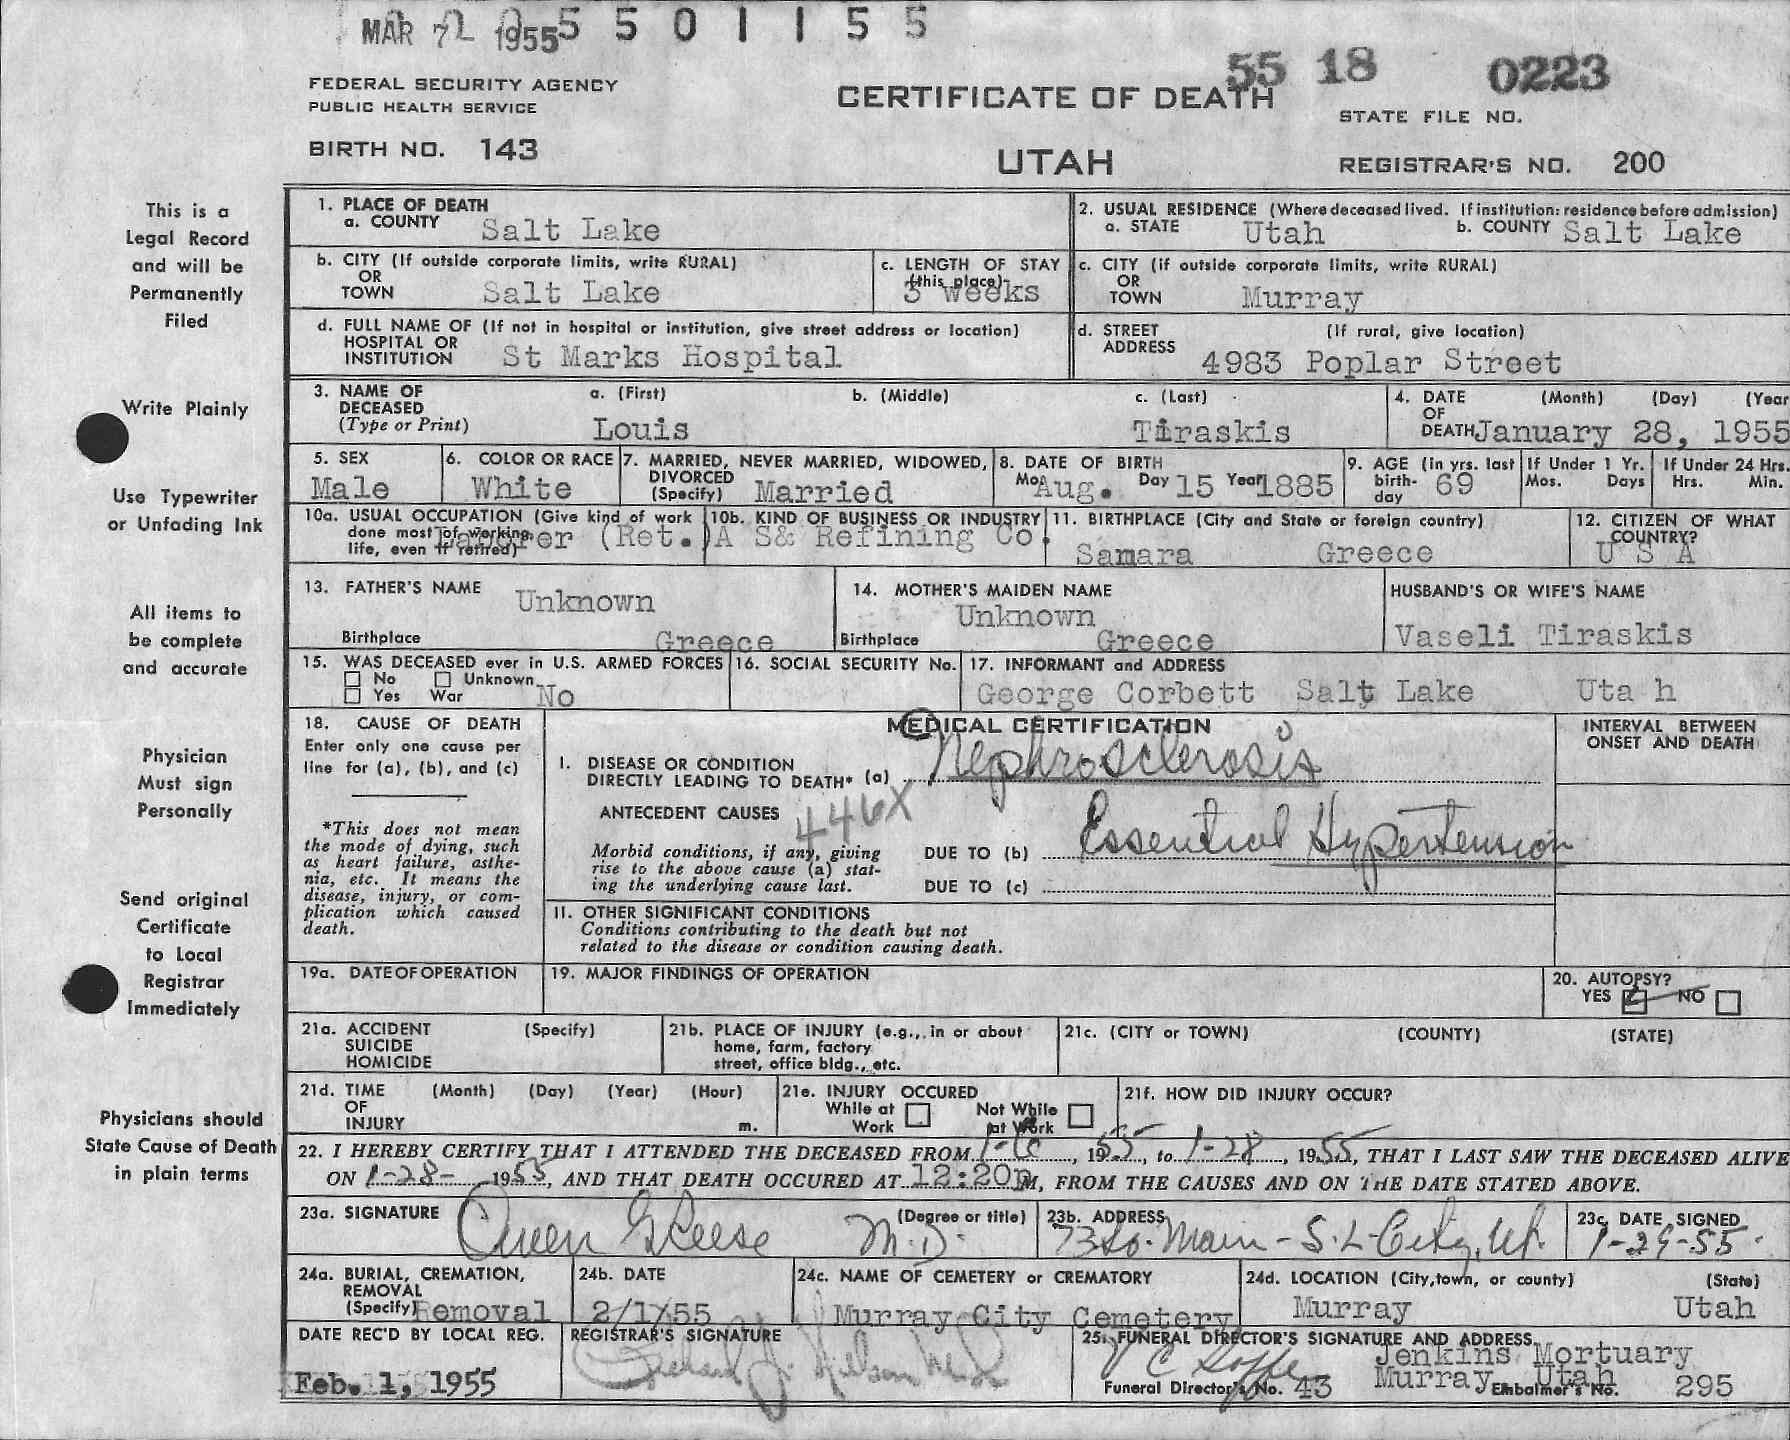 MAR 7 1955 5 5 0 1 1 5 5
55 18 0223
FEDERAL SECURITY AGENCY
PUBLIC HEALTH SERVICE
CERTIFICATE OF DEATH
STATE FILE NO.
BIRTH NO. 143
UTAH
REGISTRAR'S NO. 200
This is a
Legal Record
and will be
Permanently
Filed
Write Plainly
Use Typewriter
or Unfading Ink
All items to
be complete
and accurate
Physician
Must sign
Personally
Send original
Certificate
to Local
Registrar
Immediately
Physicians should
State Cause of Death
in plain terms
1. PLACE OF DEATH
a. COUNTY Salt Lake
2. USUAL RESIDENCE (Where deceased lived. If institution: residence before admission)
a. STATE Utah b. COUNTY Salt Lake
b. CITY (If outside corporate limits, write RURAL)
OR
TOWN Salt Lake
c. LENGTH OF STAY
(this place)
3 weeks
c. CITY (if outside corporate limits, write RURAL)
OR
TOWN Murray
d. FULL NAME OF (If not in hospital or institution, give street address or location)
HOSPITAL OR
INSTITUTION St Marks Hospital
d. STREET (If rural, give location)
ADDRESS 4983 Poplar Street
3. NAME OF a. (First) b. (Middle) c. (Last)
DECEASED
(Type or Print) Louis Tiraskis
4. DATE (Month) (Day) (Year
OF
DEATH January 28, 1955
5. SEX
Male
6. COLOR OR RACE
White
7. MARRIED, NEVER MARRIED, WIDOWED,
DIVORCED
(Specify) Married
8. DATE OF BIRTH
Mo Aug. Day 15 Year 1885
9. AGE (in yrs. last
birth-
day 69
If Under 1 Yr.
Mos. Days
If Under 24 Hrs.
Hrs. Min.
10a. USUAL OCCUPATION (Give kind of work
done most of working
life, even if retired)
Laborer (Ret.)
10b. KIND OF BUSINESS OR INDUSTRY
A S& Refining Co.
11. BIRTHPLACE (City and State or foreign country)
Samara Greece
12. CITIZEN OF WHAT
COUNTRY?
U S A
13. FATHER'S NAME Unknown
Birthplace Greece
14. MOTHER'S MAIDEN NAME
Unknown
Birthplace Greece
HUSBAND'S OR WIFE'S NAME
Vaseli Tiraskis
15. WAS DECEASED ever in U.S. ARMED FORCES
No Unknown
Yes War No
16. SOCIAL SECURITY No.
17. INFORMANT and ADDRESS
George Corbett Salt Lake Uta h
18. CAUSE OF DEATH
Enter only one cause per
line for (a), (b), and (c)
*This does not mean
the mode of dying, such
as heart failure, asthe-
nia, etc. It means the
disease, injury, or com-
plication which caused
death.
MEDICAL CERTIFICATION
INTERVAL BETWEEN
ONSET AND DEATH
I. DISEASE OR CONDITION
DIRECTLY LEADING TO DEATH* (a) Nephrosclerosis
ANTECEDENT CAUSES 446X
Morbid conditions, if any, giving
rise to the above cause (a) stat-
ing the underlying cause last.
DUE TO (b) Essential Hypertension
DUE TO (c)
II. OTHER SIGNIFICANT CONDITIONS
Conditions contributing to the death but not
related to the disease or condition causing death.
19a. DATE OF OPERATION
19. MAJOR FINDINGS OF OPERATION
20. AUTOPSY?
YES NO
21a. ACCIDENT (Specify)
SUICIDE
HOMICIDE
21b. PLACE OF INJURY (e.g., in or about
home, farm, factory
street, office bldg., etc.
21c. (CITY or TOWN) (COUNTY) (STATE)
21d. TIME (Month) (Day) (Year) (Hour)
OF
INJURY m.
21e. INJURY OCCURED
While at
Work
Not While
at Work
21f. HOW DID INJURY OCCUR?
22. I HEREBY CERTIFY THAT I ATTENDED THE DECEASED FROM 1-6, 1955, to 1-28, 1955, THAT I LAST SAW THE DECEASED ALIVE
ON 1-28- 1955, AND THAT DEATH OCCURED AT 12:20p M, FROM THE CAUSES AND ON THE DATE STATED ABOVE.
23a. SIGNATURE (Degree or title)
Owen G Reese M.D.
23b. ADDRESS
73 So. Main - S. L. City, Ut.
23c. DATE SIGNED
1-29-55
24a. BURIAL, CREMATION,
REMOVAL
(Specify) Removal
24b. DATE
2/1/55
24c. NAME OF CEMETERY or CREMATORY
Murray City Cemetery
24d. LOCATION (City, town, or county) (State)
Murray Utah
DATE REC'D BY LOCAL REG.
Feb. 1, 1955
REGISTRAR'S SIGNATURE
25. FUNERAL DIRECTOR'S SIGNATURE AND ADDRESS
Jenkins Mortuary
Murray Utah
Funeral Director's No. 43 Embalmer's No. 295